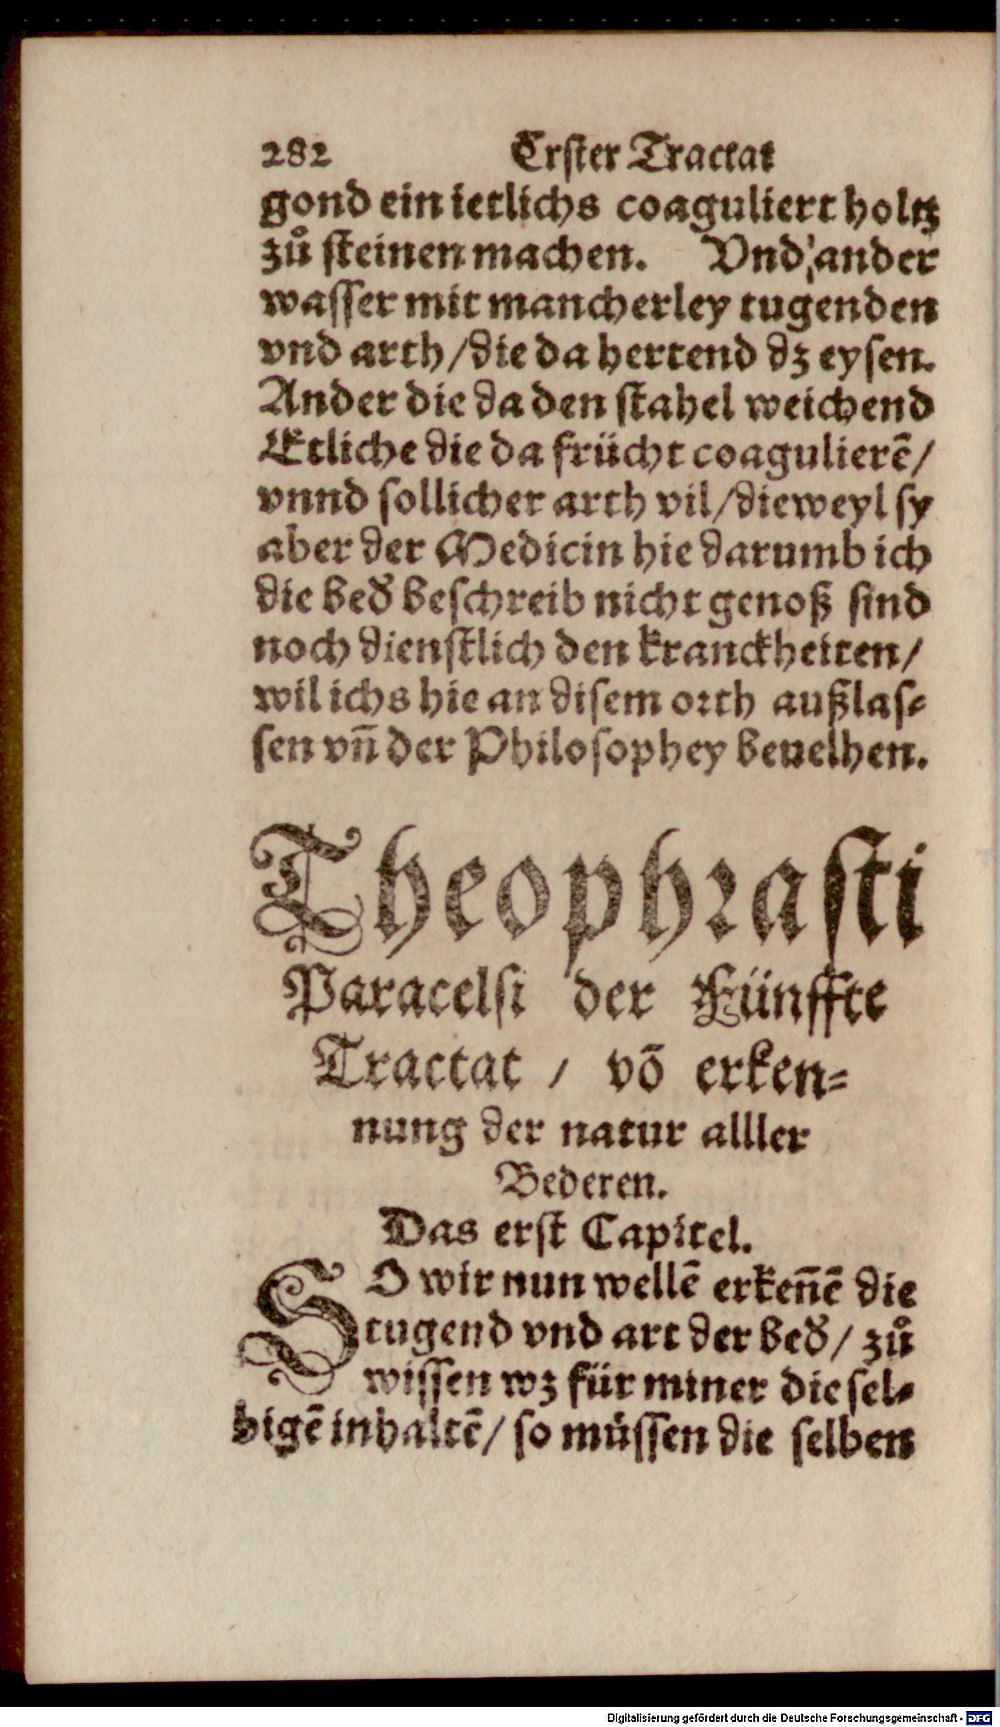 282 Erster Tractat
gond ein ietlichs coaguliert holtz
zů steinen machen. Vnd ander
wasser mit mancherley tugenden
vnd arth/die da hertend dz eysen.
Ander die da den stahel weichend
Etliche die da frücht coagulierē/
vnnd sollicher arth vil/dieweyl sy
aber der Medicin hie darumb ich
die bed̃ beschreib nicht genoß sind
noch dienstlich den kranckheiten/
wil ichs hie an disem orth außlas⸗
sen vñ der Philosophey beuelhen.
Theophrasti
Paracelsi der Fünffte
Tractat / võ erken⸗
nung der natur alller
Bederen.
Das erst Capitel.
SO wir nun wellē erkeñē die
tugend vnd art der bed̃/ zů
wissen wz für miner die sel⸗
bigē inhaltē/ so müssen die selben
Digitalisierung gefördert durch die Deutsche Forschungsgemeinschaft - DFG